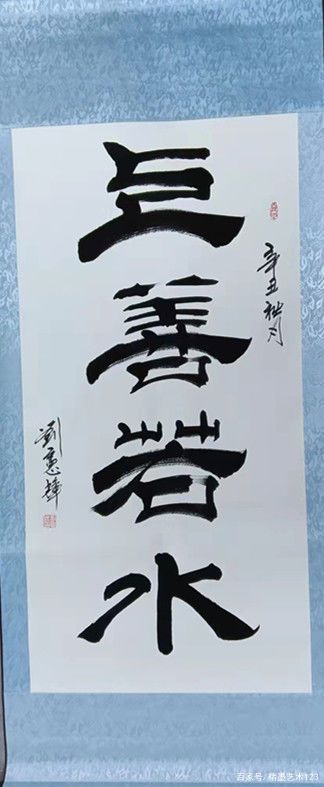 辛丑秋月
上善若水
劉
百家号/精墨艺术123